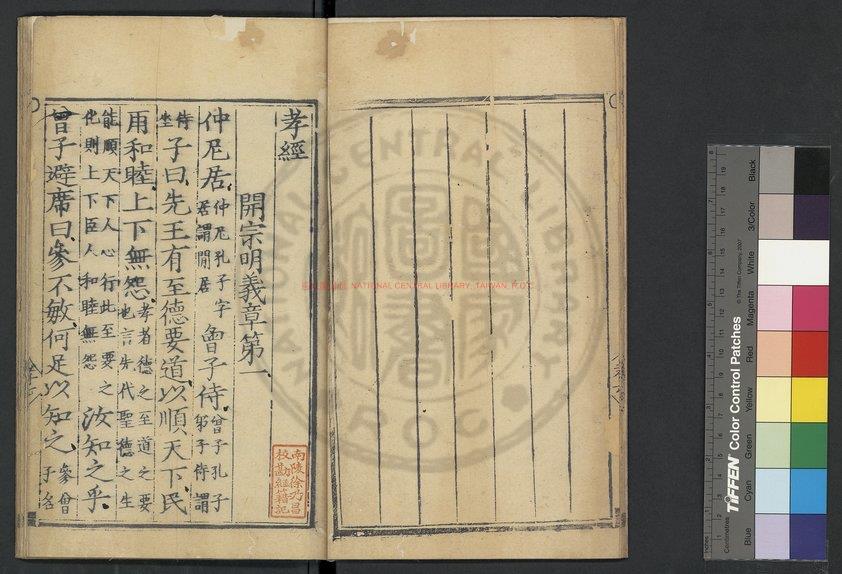 孝經
開宗明義章第一
仲尼居仲尼孔子字居謂閒居曾子侍曾子孔子弟子侍謂
侍坐子曰先王有至德要道以順天下民
用和睦上下無怨孝者德之至道之要也言先代聖德之主
能順天下人心行此至要之化則上下臣人和睦無怨汝知之乎
曾子避席曰參不敏何足以知之參曾子名
南陵徐乃昌
校勘經籍記
NATIONAL CENTRAL LIBRARY, TAIWAN, R.O.C.
TIFFEN Color Control Patches
© The Tiffen Company, 2007
Centimetres
Inches
Blue
Cyan
Green
Yellow
Red
Magenta
White
3/Color
Black